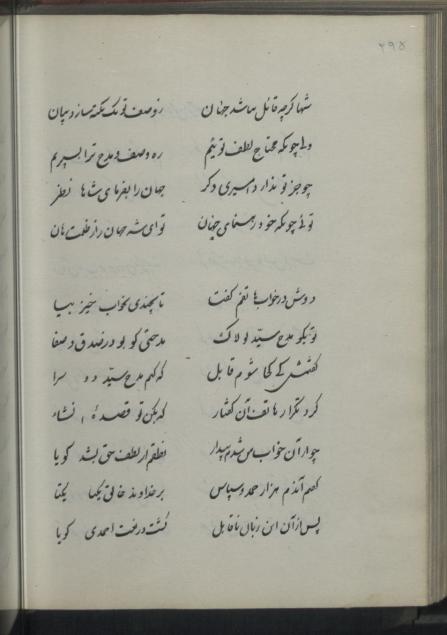 ۲۹۵
شها کرچه قائل نباشد جهان ز وصف تو یک نکته سازد بیان
ولی چونکه محتاج لطف توئیم ره وصف و مدح ترا بسپریم
چو جز تو ندارد امیری دکر جهان را بفرمای شاها نظر
توئی چونکه خود رهنمای جهان تو ای شه جهان را ز ظلمت رهان
دوش در خواب هاتفم گفت تا بچندی بخواب خیز بیا
تو بکو مدح سیّد لولاک مدحتی کو بود ز صدق و صفا
گفتمش کی کجا شوم قابل که کنم مدح سیّد دو سرا
کرد تکرار هاتف آن گفتار که بکن تو قصیدهٔ انشاء
چو از آن خواب من شدم بیدار نطقم از لطف حق بشد کویا
گفتم آندم هزار حمد و سپاس بر خداوند خالق یکتا
پس از آن این زبان ناقابل گشت در نعت احمدی کویا